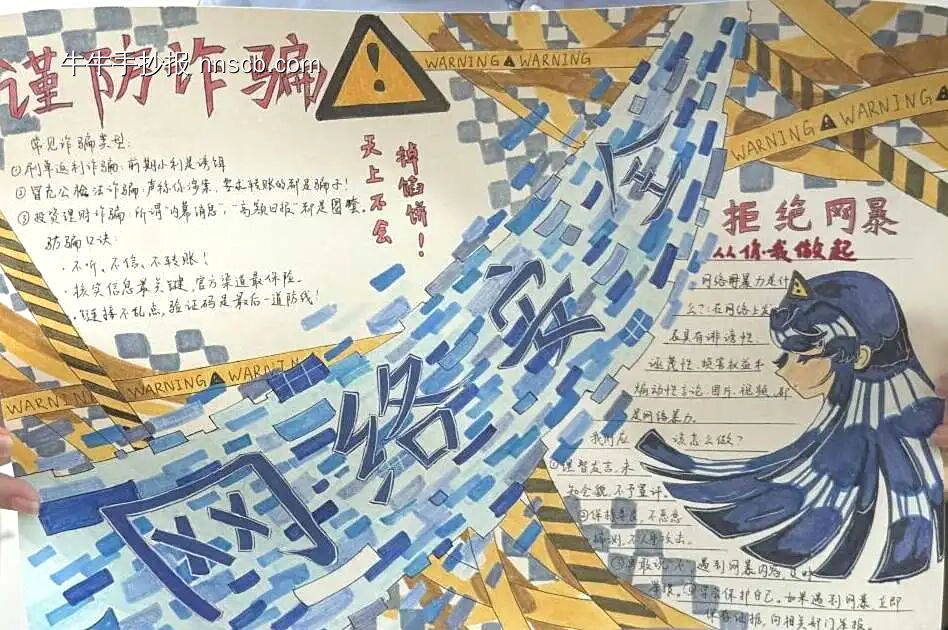 谨防诈骗
牛牛手抄报 nnscb.com
WARNING WARNING
WARNING WARNING
常见诈骗类型:
①刷单返利诈骗:前期小利是诱饵
②冒充公检法诈骗:声称你涉案,要求转账的都是骗子!
③投资理财诈骗:所谓“内幕消息”,“高额回报”都是圈套。
防骗口诀:
·不听、不信、不转账!
·核实信息最关键,官方渠道最保险。
·链接不乱点,验证码是最后一道防线!
天上不会
掉馅饼!
WARNING WARNING WARNIN
网络安全
拒绝网暴
从你我做起
网络暴力是什
么?:在网络上发
表具有诽谤性、
诬蔑性、损害权益和
煽动性言论、图片、视频,都
是网络暴力。
我们应该怎么做?
①谨慎发言,未
知全貌,不予置评。
②保持善良,不恶意
揣测,不人身攻击。
③勇敢说“不”遇到网暴内容,及时
举报。④学会保护自己。如果遇到网暴,立即
保存证据,向相关部门举报。